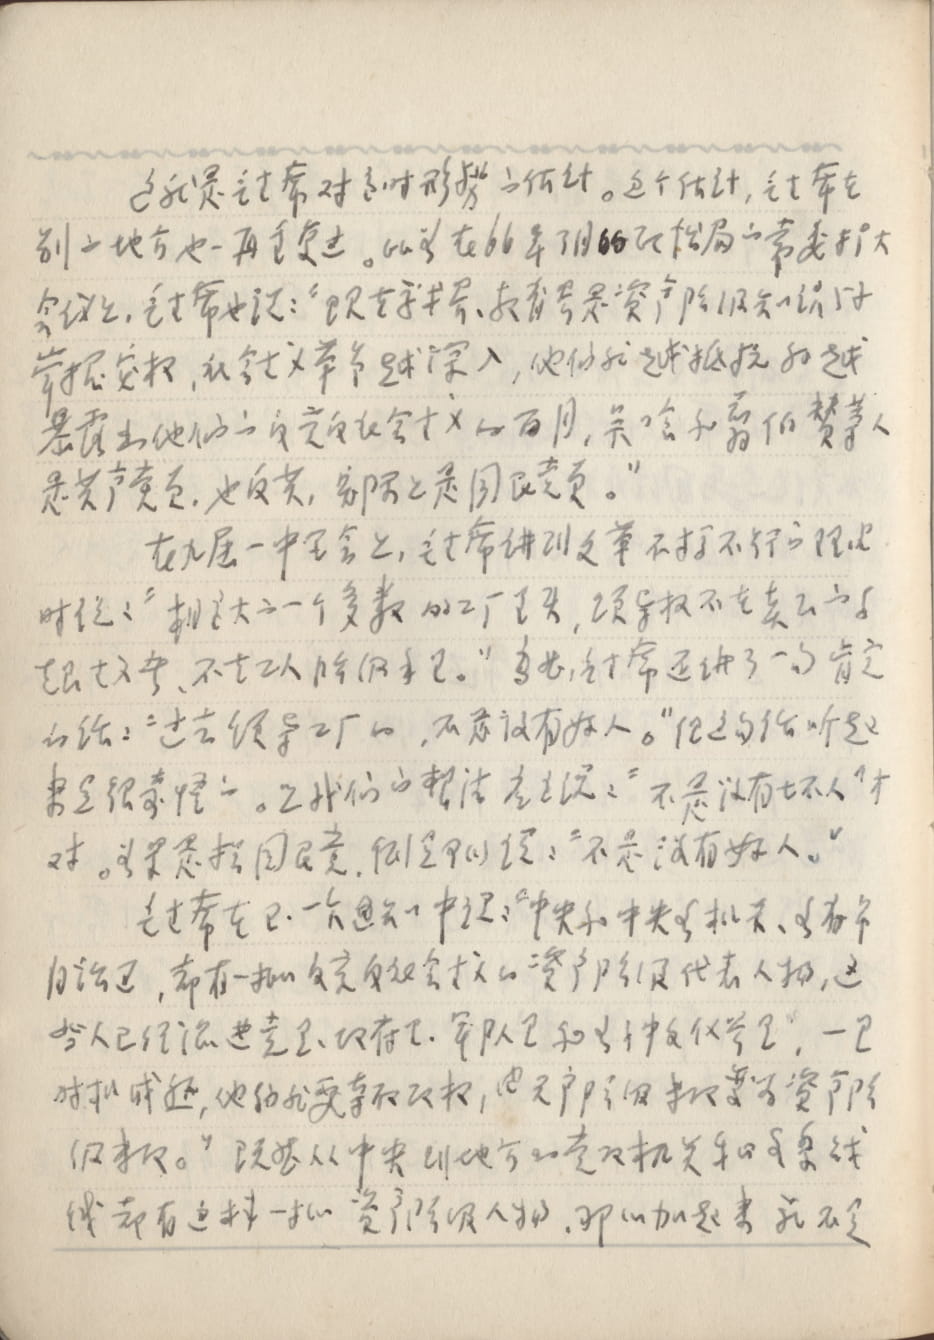 这就是毛主席对当时形势的估计。这个估计,毛主席在
别的地方也一再重复过。比如在66年3月 政治局的常委扩大
会议上,毛主席也说:“现在学术界、教育界是资产阶级知识分子
掌握实权,社会主义革命越深入,他们就越抵抗和越
暴露出他们的反党反社会主义的面目,吴晗和翦伯赞等人
是共产党员,也反共,实际上是国民党员。”
在九届一中全会上,毛主席讲到文革不打不行的理由
时说:“相当大的一个多数的工厂里头,领导权不在真正的马
克思主义者、不在工人阶级手里。”当然,毛主席还讲了一句肯定
的话:“过去领导工厂的,不是没有好人。”但这句话听起
来是很奇怪的。 我们的想法 说:“不是没有坏人”才
对。如果是指国民党,倒是可以说:“不是没有好人。”
毛主席在五·一六通知中说:“中央和中央各机关、各省市
自治区,都有一批反党反社会主义的资产阶级代表人物,这
些人已经混进党里、政府里、军队里和各种文化界里”,一旦
时机成熟,他们就要夺取政权,由无产阶级专政变为资产阶
级专政。”既然从中央到地方的党政机关和各条战
线都有这样一批资产阶级人物,那么加起来就不是